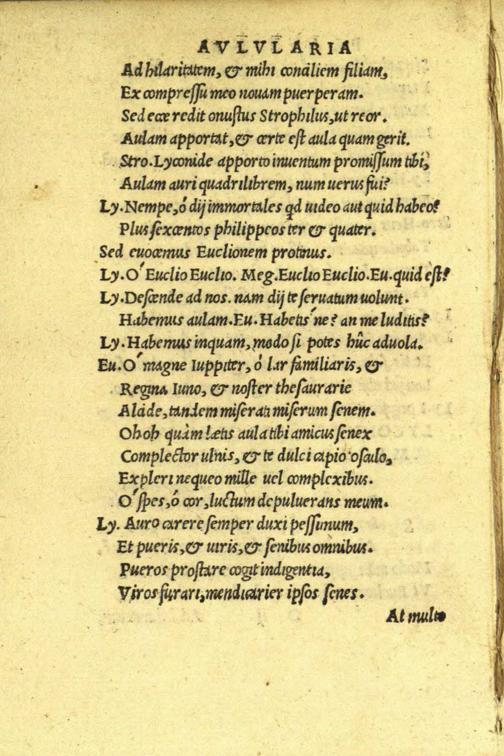 AVLVLARIA
Ad hilaritatem, & mihi conciliem filiam,
Ex compressu meo nouam puerperam.
Sed ecce redit onustus Strophilus, ut reor.
Aulam apportat, & certe est aula quam gerit.
Stro. Lyconide apporto inuentum promissum tibi,
Aulam auri quadrilibrem, num uerus fui?
Ly. Nempe, ó dij immortales qd uideo aut quid habeo?
Plus sexcentos philippeos ter & quater.
Sed euocemus Euclionem protinus.
Ly. O' Euclio Euclio. Meg. Euclio Euclio. Eu. quid est?
Ly. Descende ad nos. nam dij te seruatum uolunt.
Habemus aulam. Eu. Habetis' ne? an me luditis?
Ly. Habemus inquam, modo si potes hûc aduola.
Eu. O' magne Iuppiter, ó lar familiaris, &
Regina Iuno, & noster thesaurarie
Alcide, tandem miserati miserum senem.
Oh oh quàm lætis aula tibi amicus senex
Complector ulnis, & te dulci capio osculo,
Expleri nequeo mille uel complexibus.
O' spes, ó cor, luctum depuluerans meum.
Ly. Auro carere semper duxi pessimum,
Et pueris, & uiris, & senibus omnibus.
Pueros prostare cogit indigentia,
Viros furari, mendicarier ipsos senes.
At multo